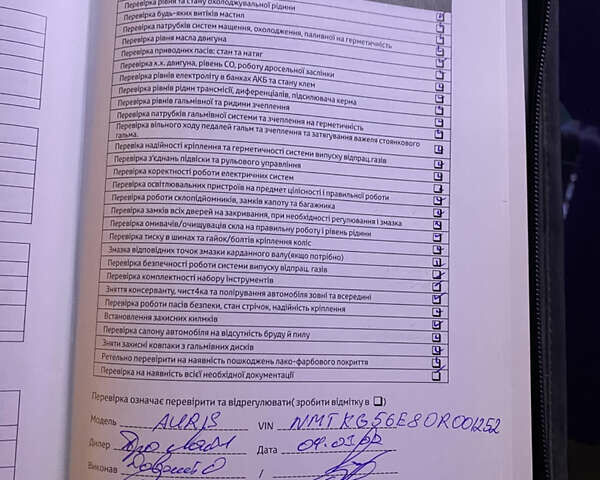 Перевірка рівня та стану охолоджувальної рідини
Перевірка будь-яких витіків мастил
Перевірка патрубків систем мащення, охолодження, паливної на герметичність
Перевірка рівня масла двигуна
Перевірка приводних пасів: стан та натяг
Перевірка х.х. двигуна, рівень СО, роботу дросельної заслінки
Перевірка рівнів електроліту в банках АКБ та стану клем
Перевірка рівнів рідин трансмісії, диференціалів, підсилювача керма
Перевірка рівнів гальмівної та ридини зчеплення
Перевірка патрубків гальмівної системи та зчеплення на герметичність
Перевірка вільного ходу педалей гальм та зчеплення та затягування важеля стоянкового
гальма.
Певірка надійності кріплення та герметичності системи випуску відпрац.газів
Перевірка з'єднань підвіски та рульового управління
Перевірка коректності роботи електричних систем
Перевірка освітлювальних пристроїв на предмет цілісності і правильної роботи
Перевірка роботи склопідйомників, замків капоту та багажника
Перевірка замків всіх дверей на закривання, при необхідності регулювання і змазка
Перевірка омивачів/очищувація скла на правильну роботу і рівень рідини
Перевірка тиску в шинах та гайок/болтів кріплення коліс
Змазка відповідних точок змазки карданного валу(якщо потрібно)
Перевірка безпечності роботи системи випуску відпрац. газів
Перевірка комплектності набору інструментів
Зняття консерванту, чист4ка та полірування автомобіля зовні та всередині
Перевірка роботи пасів безпеки, стан стрічок, надійність кріплення
Встановлення захисних килимків
Перевірка салону автомобіля на відсутність бруду й пилу
Зняти захисні ковпаки з гальмівних дисків
Ретельно перевірити на наявність пошкоджень лако-фарбового покриття
Перевірка на наявність всієї необхідної документації
Перевірка означає перевірити та відрегулювати( зробити відмітку в )
Модель AURIS VIN NMTKG56E80R001252
Дилер Дата
Виконав /